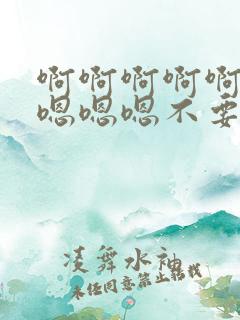 啊啊啊啊啊
嗯嗯嗯不要
凌舞水袖
未经同意禁止转载